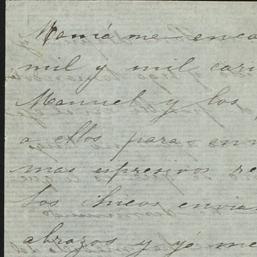 Mamá me enca
mil y mil cari
Manuel y los
a ellos para en
mas espresivos re
Los chicos envia
abrazos y yó me